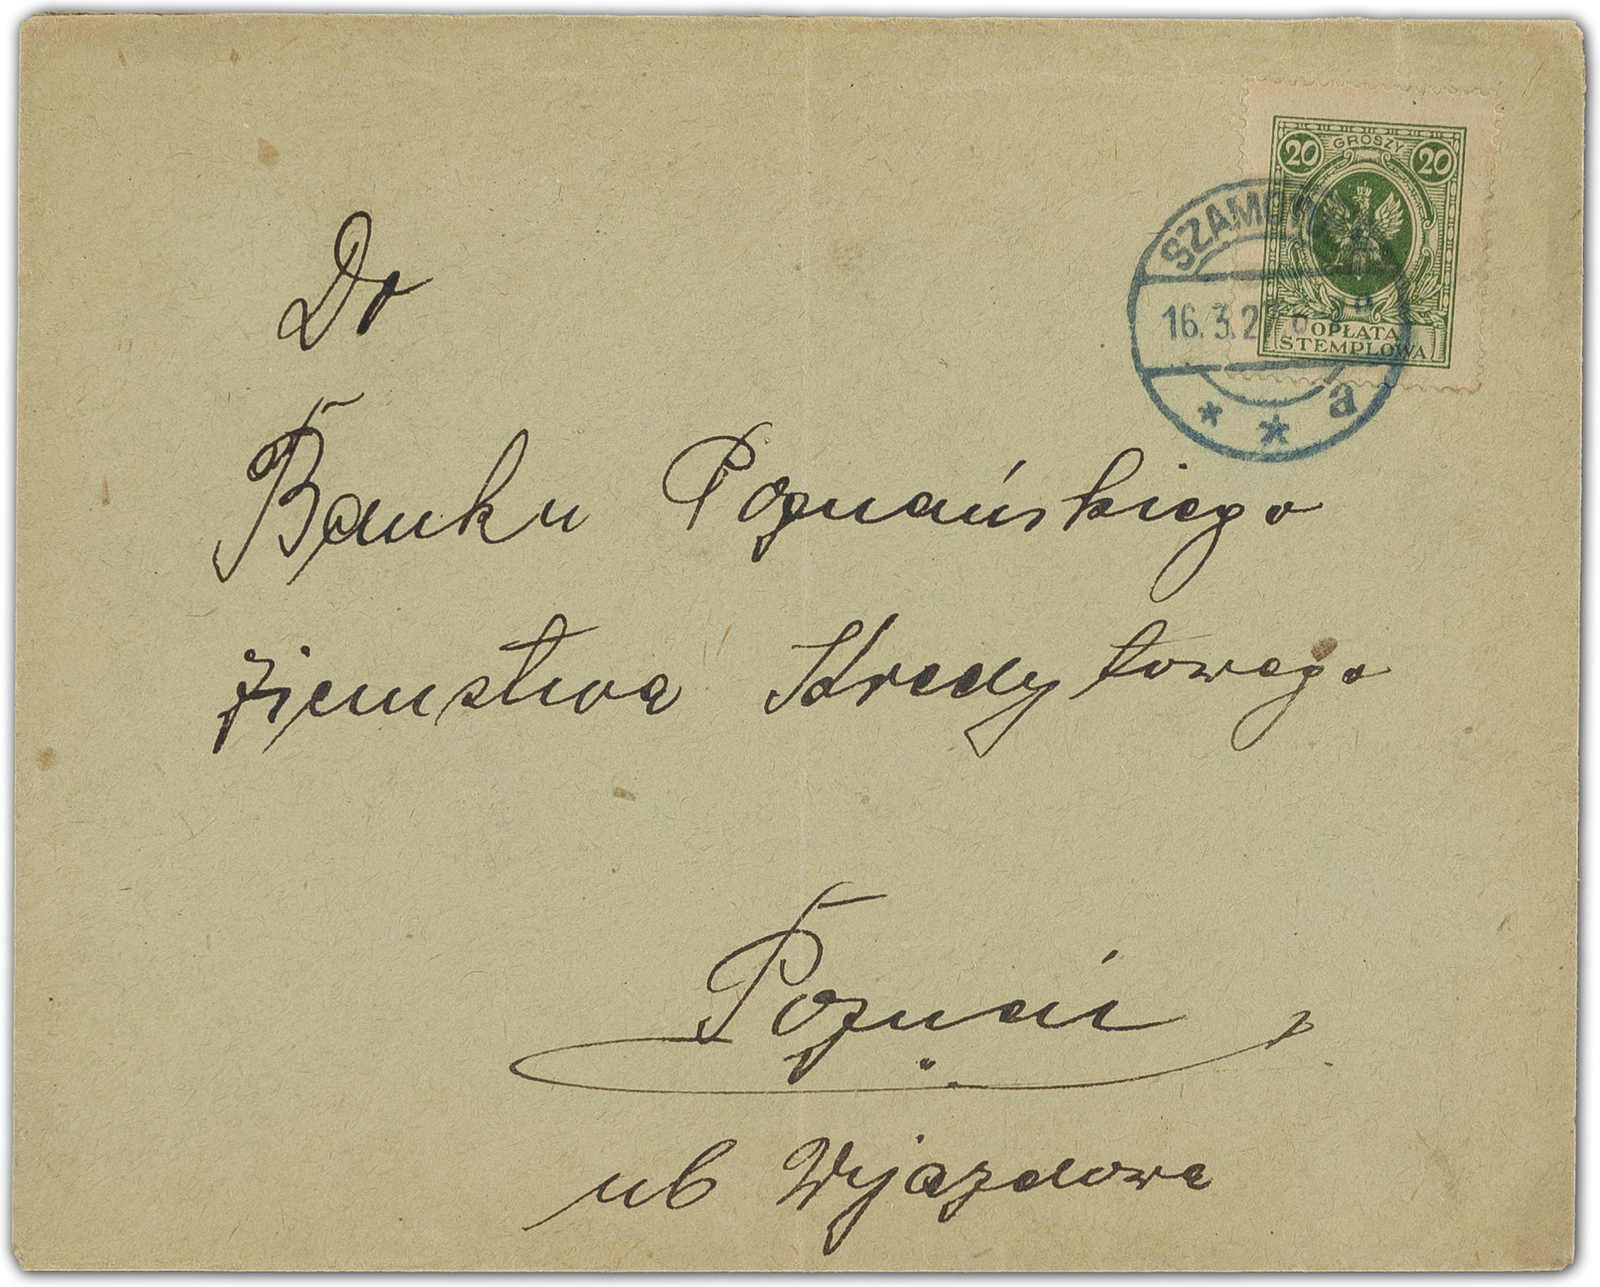 20 GROSZY 20
OPŁATA
STEMPLOWA
16.3.2
* * a
Do
Banku Poznańskiego
Ziemstwa Kredytowego
Poznań
ul Wjazdowa